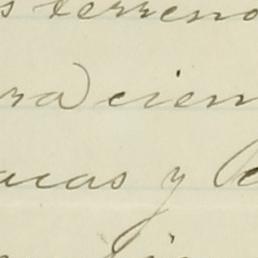 s terreno
ra) cien
acas y